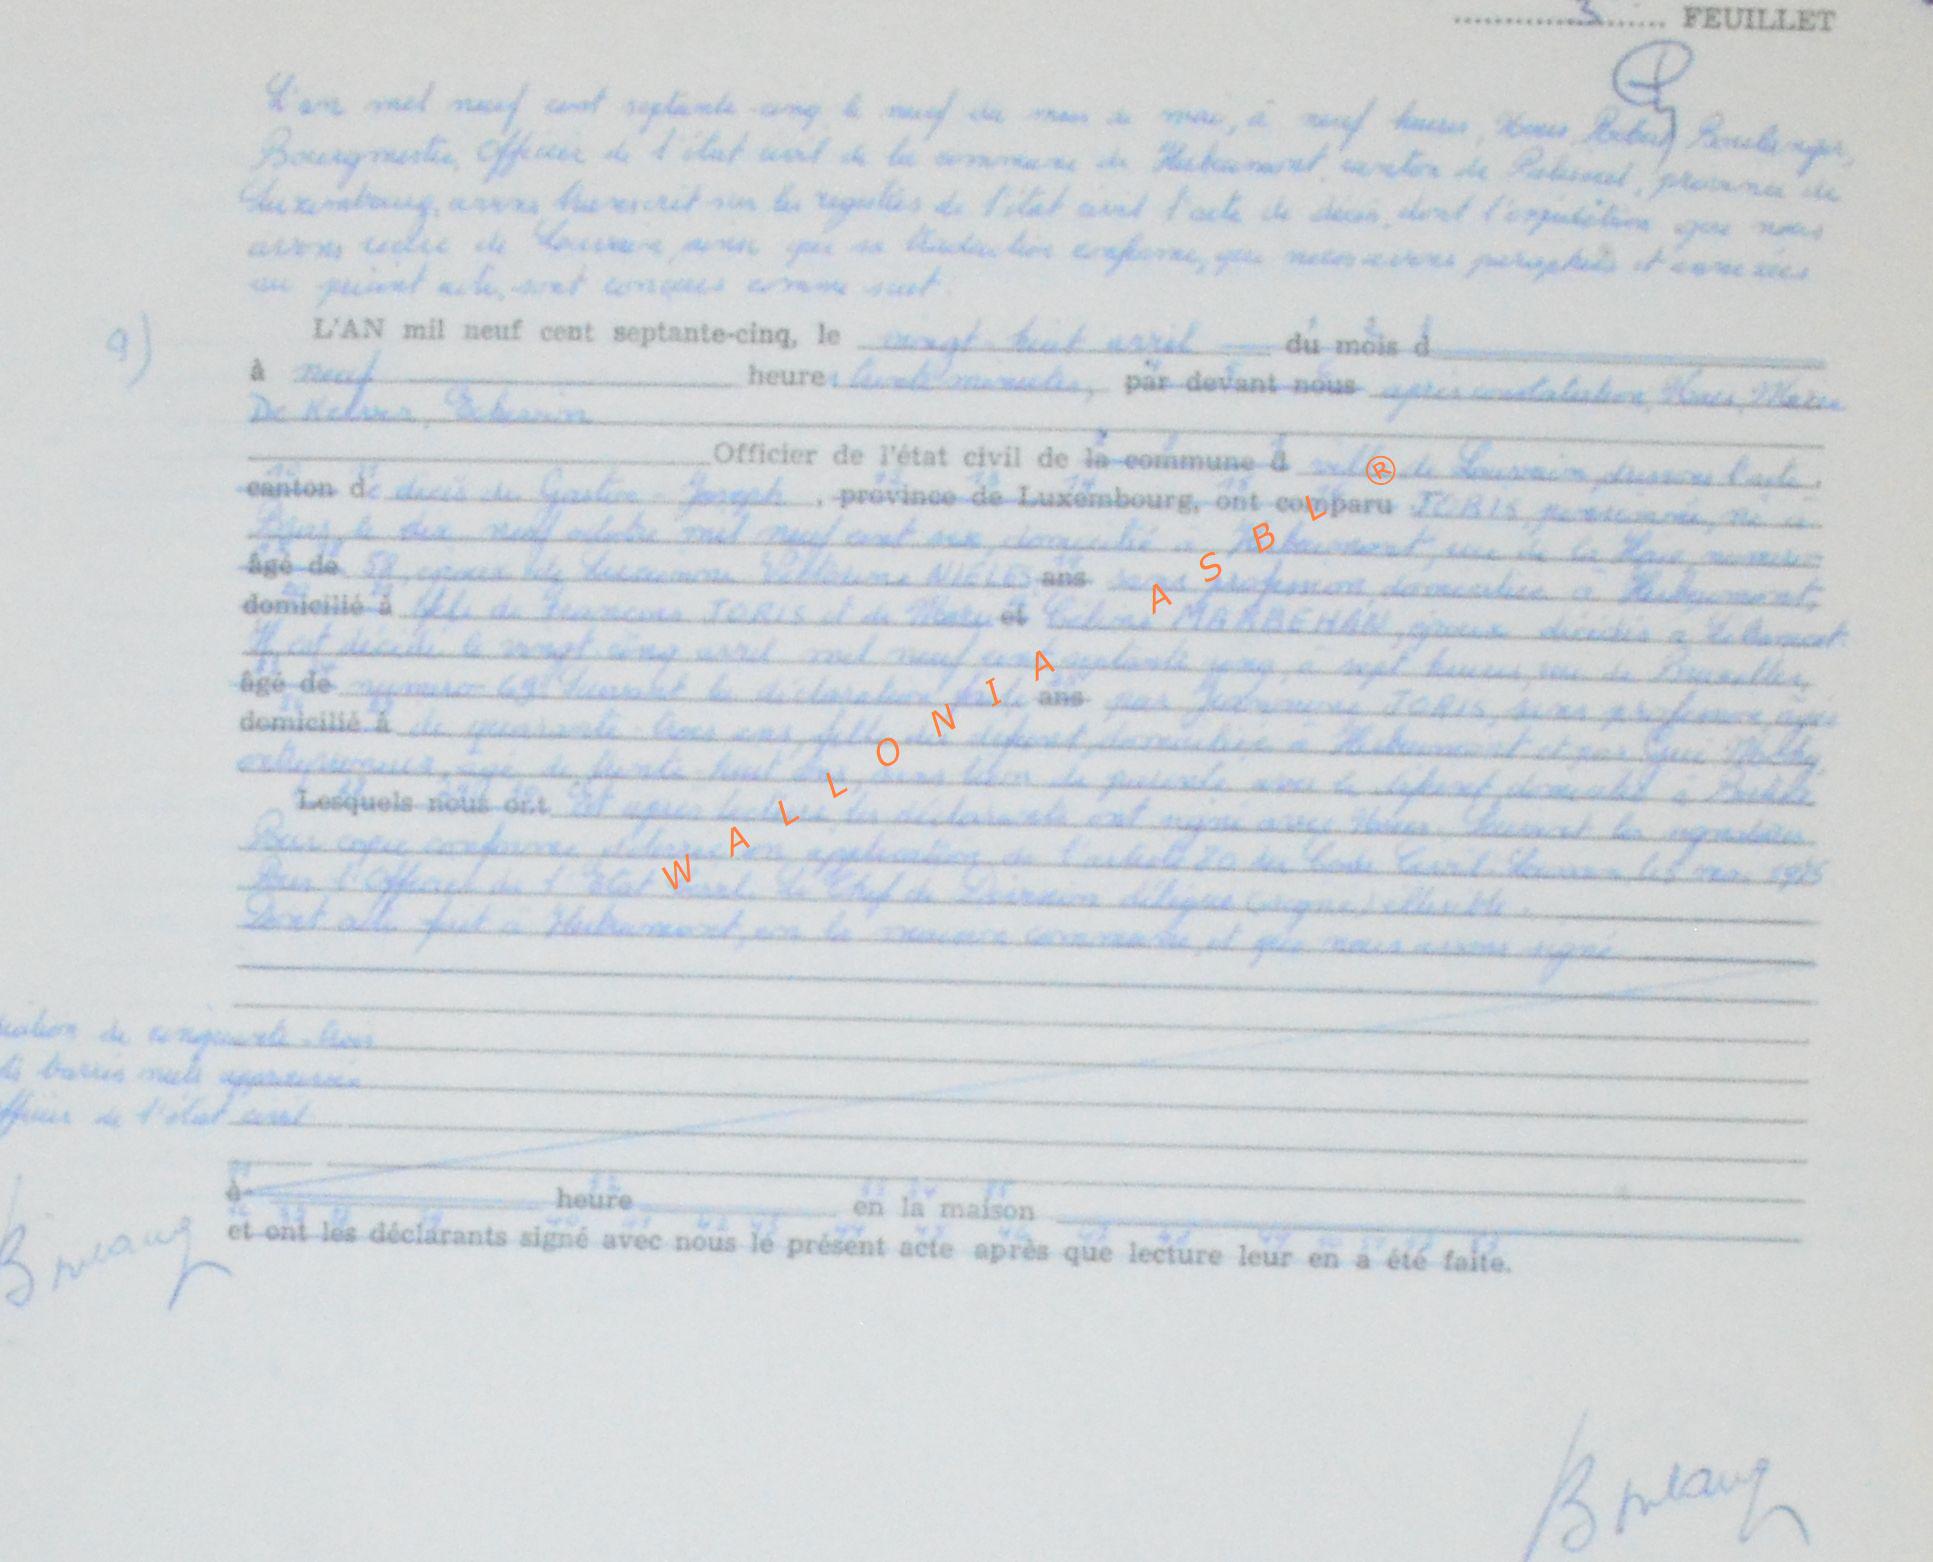 3 FEUILLET
L'an mil neuf cent septante-cinq le neuf du mois de mai, à neuf heures, Nous, Robert Boulanger,
Bourgmestre, Officier de l'état civil de la commune de Herbeumont, canton de Paliseul, province de
Luxembourg, avons transcrit sur les registres de l'état civil l'acte de décès, dont l'expédition que nous
avons reçue de Louvain ainsi que sa traduction conforme, que nous avons paraphés et annexées
au présent acte, sont conçues comme suit:
9)
L'AN mil neuf cent septante-cinq, le vingt-huit avril du mois d
à neuf heures trente minutes, par devant nous après constatation, Nous, Marie
De Kelver, Echevin
Officier de l'état civil de la commune d ville de Louvain, dressons l'acte
canton de décès de Gaston-Joseph, province de Luxembourg, ont comparu JORIS pensionné, né à
le dix neuf octobre mil neuf cent six, domicilié à Herbeumont, rue de la Haie, numéro
âgé de 58, époux de NIELES ans sans profession, domiciliée à Herbeumont,
domicilié à fils de François JORIS et de Mary et Céline MARREHAN, époux décédés à
Il est décédé le vingt cinq avril mil neuf cent septante cinq, à sept heures, rue de Bruxelles,
âgé de numéro 69. Suivant la déclaration faite ans par JORIS, sans profession, âgée
domicilié à de quarante-trois ans, fille du défunt, domiciliée à Herbeumont et par Guy
entrepreneur, âgé de trente-huit ans, sans lien de parenté avec le défunt, domicilié à
Lesquels nous ont Et après lecture, les déclarants ont signé avec Nous. Suivent les signatures.
Pour copie conforme application de l'article 80 du Code Civil. Louvain, le 5 mai 1975
Pour l'Officier de l'Etat Civil. Le Chef de Division délégué (signé) illisible.
Dont acte fait à Herbeumont, en la maison communale, et que nous avons signé
de cinquante-trois
barrés nuls approuvée
Officier de l'état civil
à heure en la maison
et ont les déclarants signé avec nous le présent acte après que lecture leur en a été faite.
Boulang
Boulang
WALLONIA ASBL ®